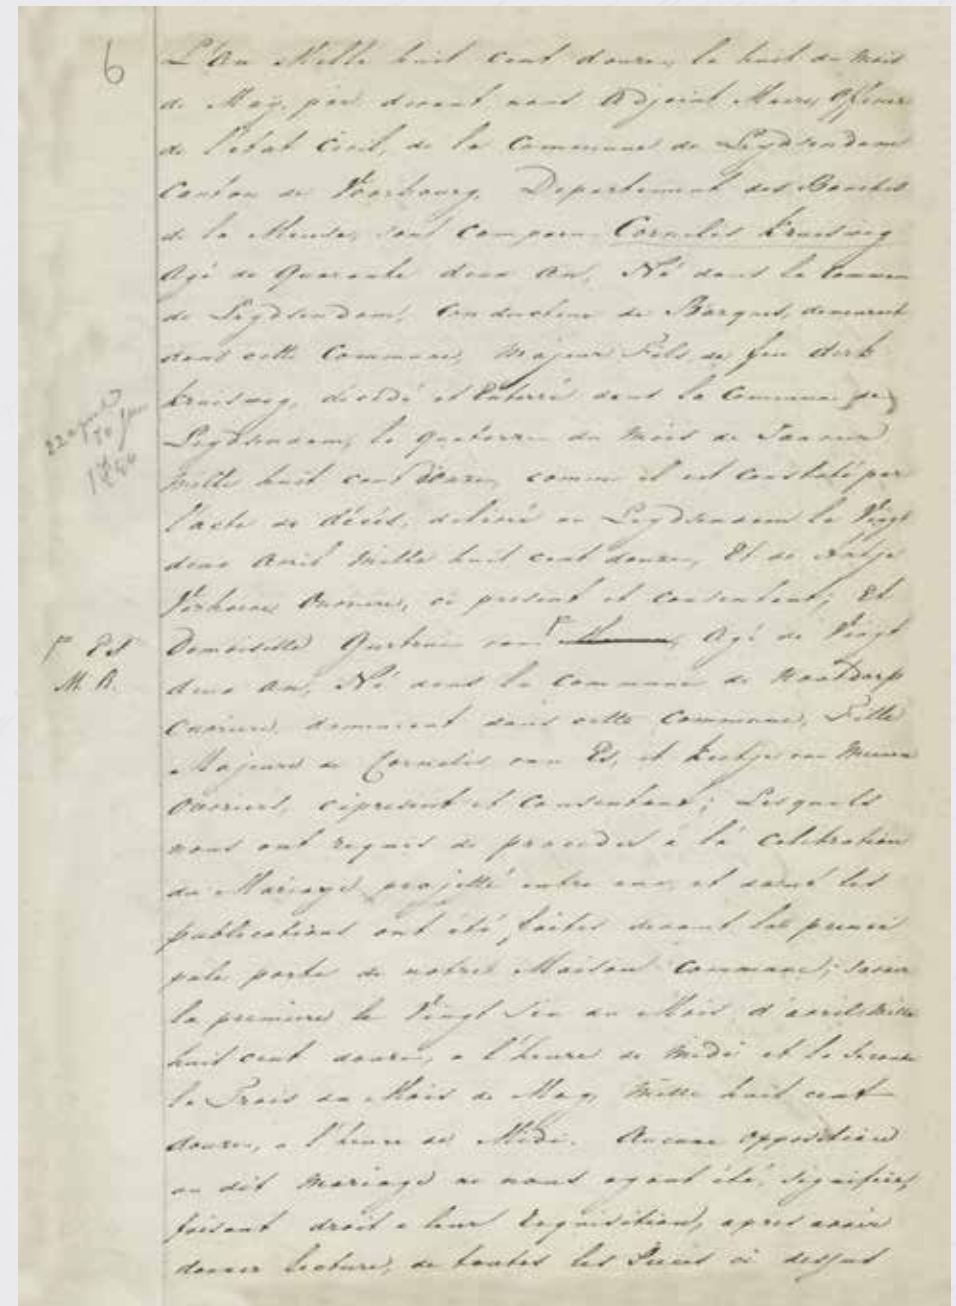 6
L'An Mille huit cent douze, le huit du Mois
de Maÿ, par devant nous Adjoint Maire, Officier
de l'état Civil, de la Commune de Leydsendam
Canton de Voorbourg, Departement des Bouches
de la Meuse, sont comparu Cornelis Kruisweg
Agé de Quarante deux An, Né dans la Commun
de Leydsendam, Conducteur de Barques, demeurant
dans cette Commune, Majeur Fils de feu dirk
Kruisweg, décédé et Enterré dans la Commune de
Leydsendam, le quatorze du Mois de Janvier
Mille huit cent douze, comme il est constaté par
l'acte de décés, delivré en Leydsendam le Vingt
deux Avril Mille huit cent douze, Et de Antje
Ouvriere, ci present et consentant; Et
Demoiselle van Agé de Vingt
E S
M. A.
deux An, Né dans la Commune de Nootdorp
Ouvriere demeurant dans cette Commune, Fille
Majeure de Cornelis van Es, et van
Ouvriers, cipresent et Consentant; Lesquels
nous ont requis de proceder à la Celebration
du Mariage projetté entre eux, et dont les
publications ont été faites devant la princi
pale porte de notre Maison Commune; savoir
la premiere le Vingt Six du Mois d'avril Mille
huit cent douze, a l'heure de Midi et la Seconde
le Trois du Mois de May Mille huit cent
douze, a l'heure de Midi. Aucune opposition
au dit Mariage ne nous ayant été signifiée,
faisant droit a leur requisition, apres avoir
donner lecture, de toutes les Pieces ci dessus